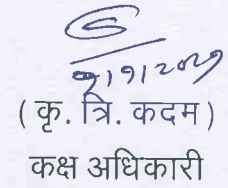 ( कृ. त्रि. कदम )
कक्ष अधिकारी